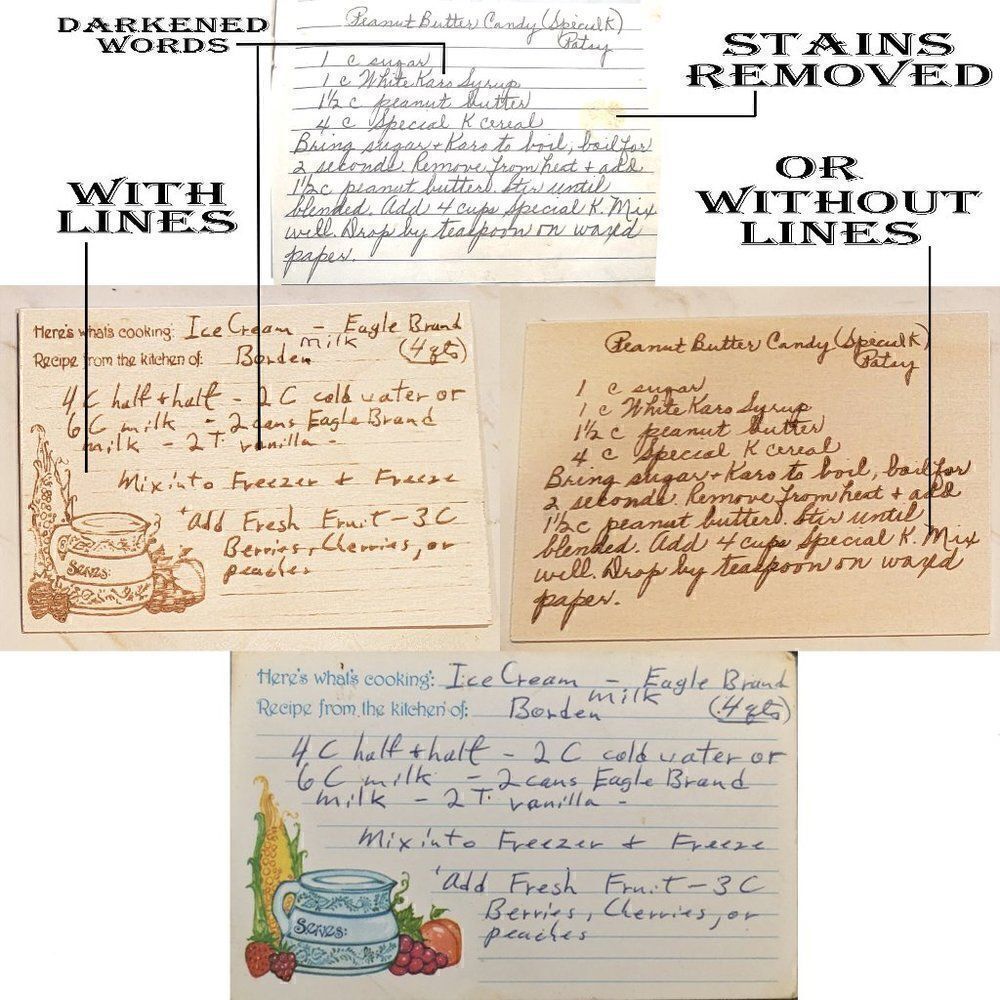 DARKENED
WORDS
Peanut Butter Candy (Special K)
Patsy
1 c sugar
1 c White Karo Syrup
1½ c peanut butter
4 c Special K cereal
Bring sugar + Karo to boil, boil for
2 seconds. Remove from heat + add
1½ c peanut butter. Stir until
blended. Add 4 cups Special K. Mix
well. Drop by teaspoon on waxed
paper.
STAINS
REMOVED
WITH
LINES
OR
WITHOUT
LINES
Here's what's cooking: Ice Cream - Eagle Brand
milk
Recipe from the kitchen of: Borden (4 qts)
4 C half + half - 2 C cold water or
6 C milk - 2 cans Eagle Brand
milk - 2 T. vanilla -
Mix into Freezer + Freeze
'Add Fresh Fruit - 3 C
Berries, Cherries, or
peaches
Serves:
Peanut Butter Candy (Special K)
Patsy
1 c sugar
1 c White Karo Syrup
1½ c peanut butter
4 c Special K cereal
Bring sugar + Karo to boil, boil for
2 seconds. Remove from heat + add
1½ c peanut butter. Stir until
blended. Add 4 cups Special K. Mix
well. Drop by teaspoon on waxed
paper.
Here's what's cooking: Ice Cream - Eagle Brand
milk
Recipe from the kitchen of: Borden (4 qts)
4 C half + half - 2 C cold water or
6 C milk - 2 cans Eagle Brand
milk - 2 T. vanilla -
Mix into Freezer + Freeze
'Add Fresh Fruit - 3 C
Berries, Cherries, or
peaches
Serves: